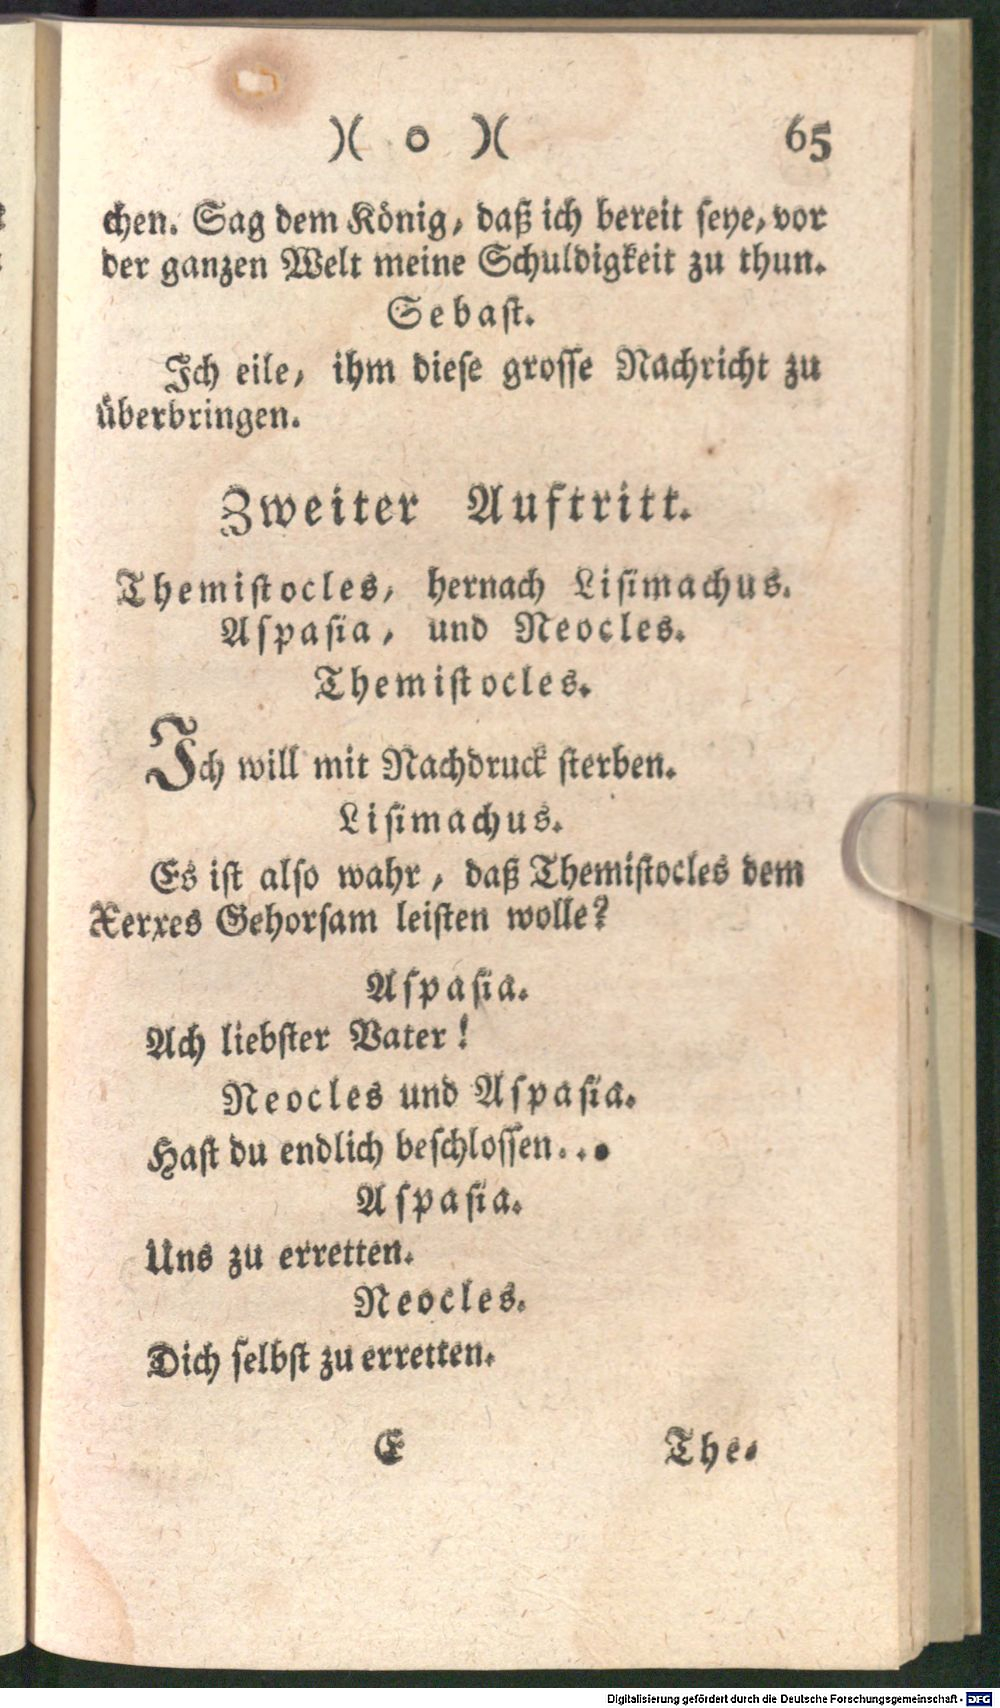 )( o )( 65
chen. Sag dem König, daß ich bereit seye, vor
der ganzen Welt meine Schuldigkeit zu thun.
Sebast.
Ich eile, ihm diese grosse Nachricht zu
überbringen.
Zweiter Auftritt.
Themistocles, hernach Lisimachus.
Aspasia, und Neocles.
Themistocles.
Ich will mit Nachdruck sterben.
Lisimachus.
Es ist also wahr, daß Themistocles dem
Xerxes Gehorsam leisten wolle?
Aspasia.
Ach liebster Vater!
Neocles und Aspasia.
Hast du endlich beschlossen...
Aspasia.
Uns zu erretten.
Neocles.
Dich selbst zu erretten.
E The-
Digitalisierung gefördert durch die Deutsche Forschungsgemeinschaft - DFG